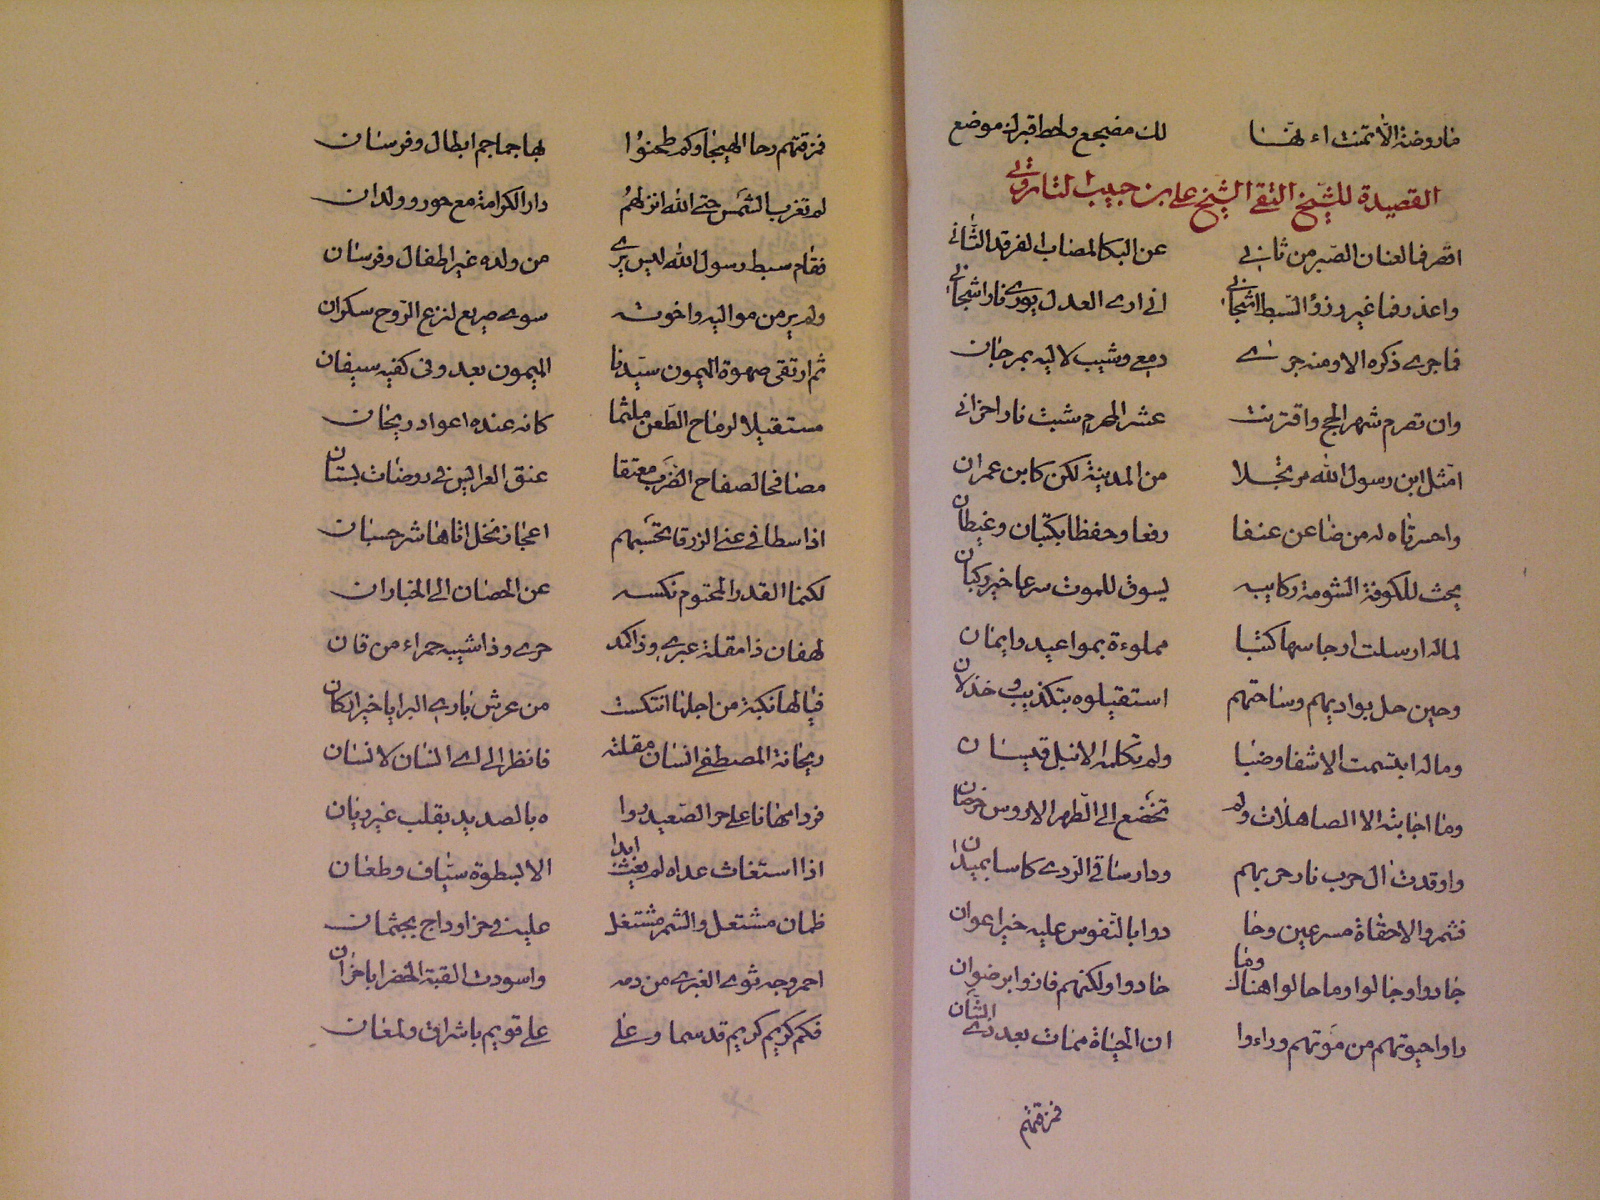 ما روضة الا تمنت انها لك مضجع ولحط قبرك موضع
القصيدة للشيخ التقي الشيخ علي بن حبيب التاروتي
اصرفا لعنان الصبر من ثاني عن البكا لمصاب الفرقد الثاني
واعذر فما غير رزؤ السبط اشجاني اني ارى العدل يورى نار اشجاني
فما جرى ذكره الا ومنه جرى دمعي وشيب لاليه بمرجان
وان تصرم شهر الحج واقتربت عشر المحرم شبت نار احزاني
امثل ابن رسول الله مرتحلا من المدينة لكن كابن عمران
واحسرتاه له من ضاعن عنفا رفعا وحفظا بكثبان وغيطان
يحث للكوفة الشومة ركايبه يسوق للموت سرعا خير ركبان
لما له ارسلت ارجاسها كتبا مملوءة بمواعيد وايمان
وحين حل بواديهم وساحتهم استقبلوه بتكذيب وخذلان
وما له ابتسمت الا شفا وضبا ولم تكلمه الا نبل قيسان
وما اجابته الا الصاهلات ولم تخضع الى الطهر الا روس خرصان
واوقدت ال حرب نار حربهم ودار ساقي الردى كاسا بميدان
فثم والا حماة مسرعين وحا دوا بالنفوس عليه خير اعوان
جادوا وجالوا وما حالوا هناك وما حادوا ولكنهم فازوا برضوان
راوا حيوتهم من موتهم وراءوا ان الحياة ممات بعد ذي الشان
فمزقتهم
فمزقتهم رحا الهيجا وكم طحنوا بها جماجم ابطال وفرسان
لم تغرب الشمس حتى الله انزلهم دار الكرامة مع حور وولدان
فقام سبط رسول الله ليس يرى من ولده غير اطفال وفرسان
ولم ير من مواليه واخوته سوى صريع لنزع الروح سكران
ثم ارتقى صهوة الميمون سيدنا الميمون يعدو في كفيه سيفان
مستقبلا لرماح الطعن ملثما كانه عنده اعواد ريحان
مصافحا لصفاح الضرب معتقا عنق العرايس في روضات بستان
اذا سطا في عنى الزرقا تحسبهم اعجاز نخل اتاها شر حسبان
لكنما القدر المحتوم نكسه عن الحصان الى الخباران
لهفان ذا مقلة عبرى وذا كمد حرى وذا شيبه حمراء من قان
فيا لها نكبة من اجلها انتكست من عرش باري البرايا خير اركان
ريحانة المصطفى انسان مقلته فانظر الى اي انسان لانسان
فردا مهانا على حر الصعيد روا ه بالصديد بقلب غير ريان
اذا استغاث عداه لم يغث ابدا الا بسطوة سياف وطعان
ظمان مشتعل والشمر مشتغل عليه في حز اوداج بجثمان
احمر وجه ثوى الغبرى من دمه واسودت القبة الخضرا باحزان
فكم كريم كريم قد سما وعلى على قويم باشراق ولمعان